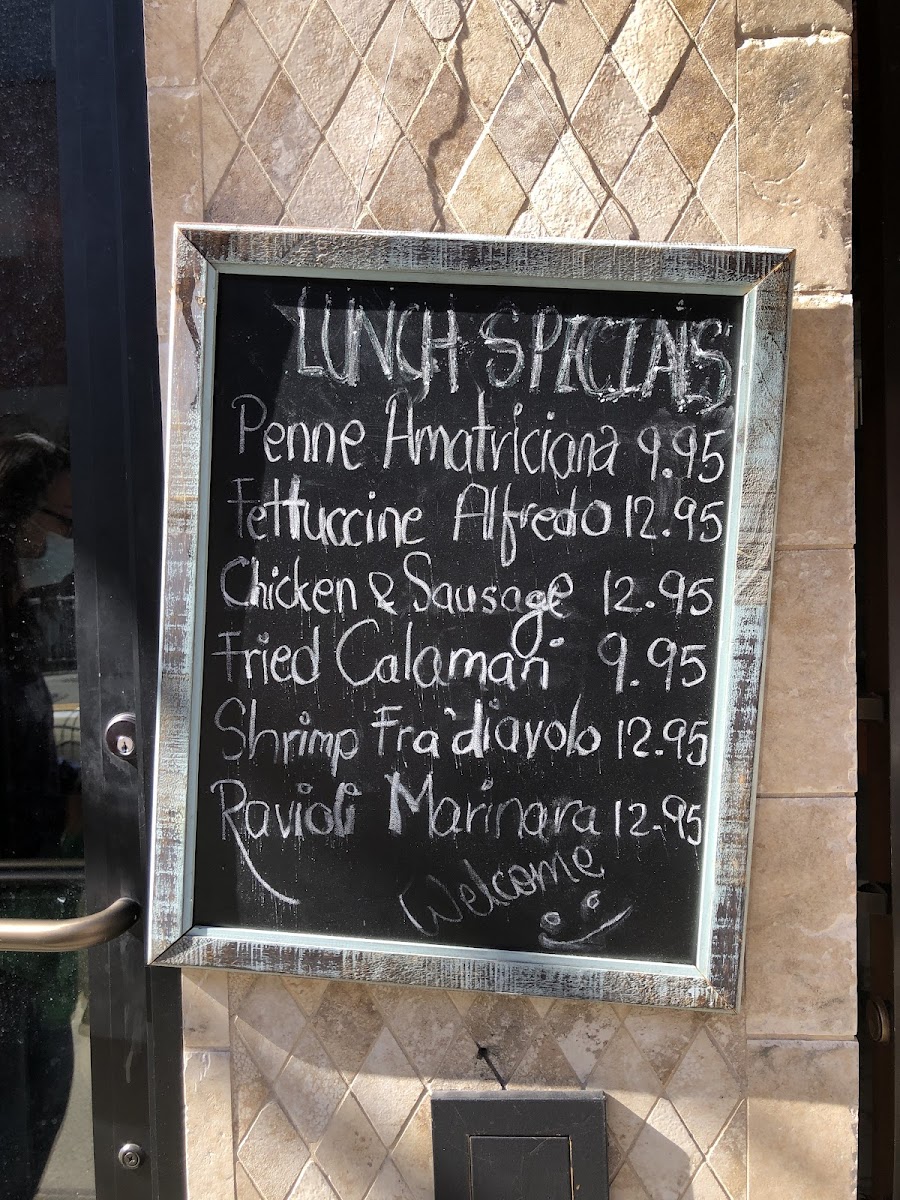 LUNCH SPECIALS
Penne Amatriciana 9.95
Fettuccine Alfredo 12.95
Chicken & Sausage 12.95
Fried Calamari 9.95
Shrimp Fra'diavolo 12.95
Ravioli Marinara 12.95
Welcome